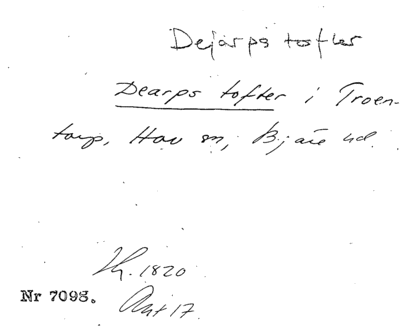 Dejarps tofter
Dearps tofter i Troen-
torp, Hov sn, Bjäre hd.
1820
Nr 7098. Akt 17.